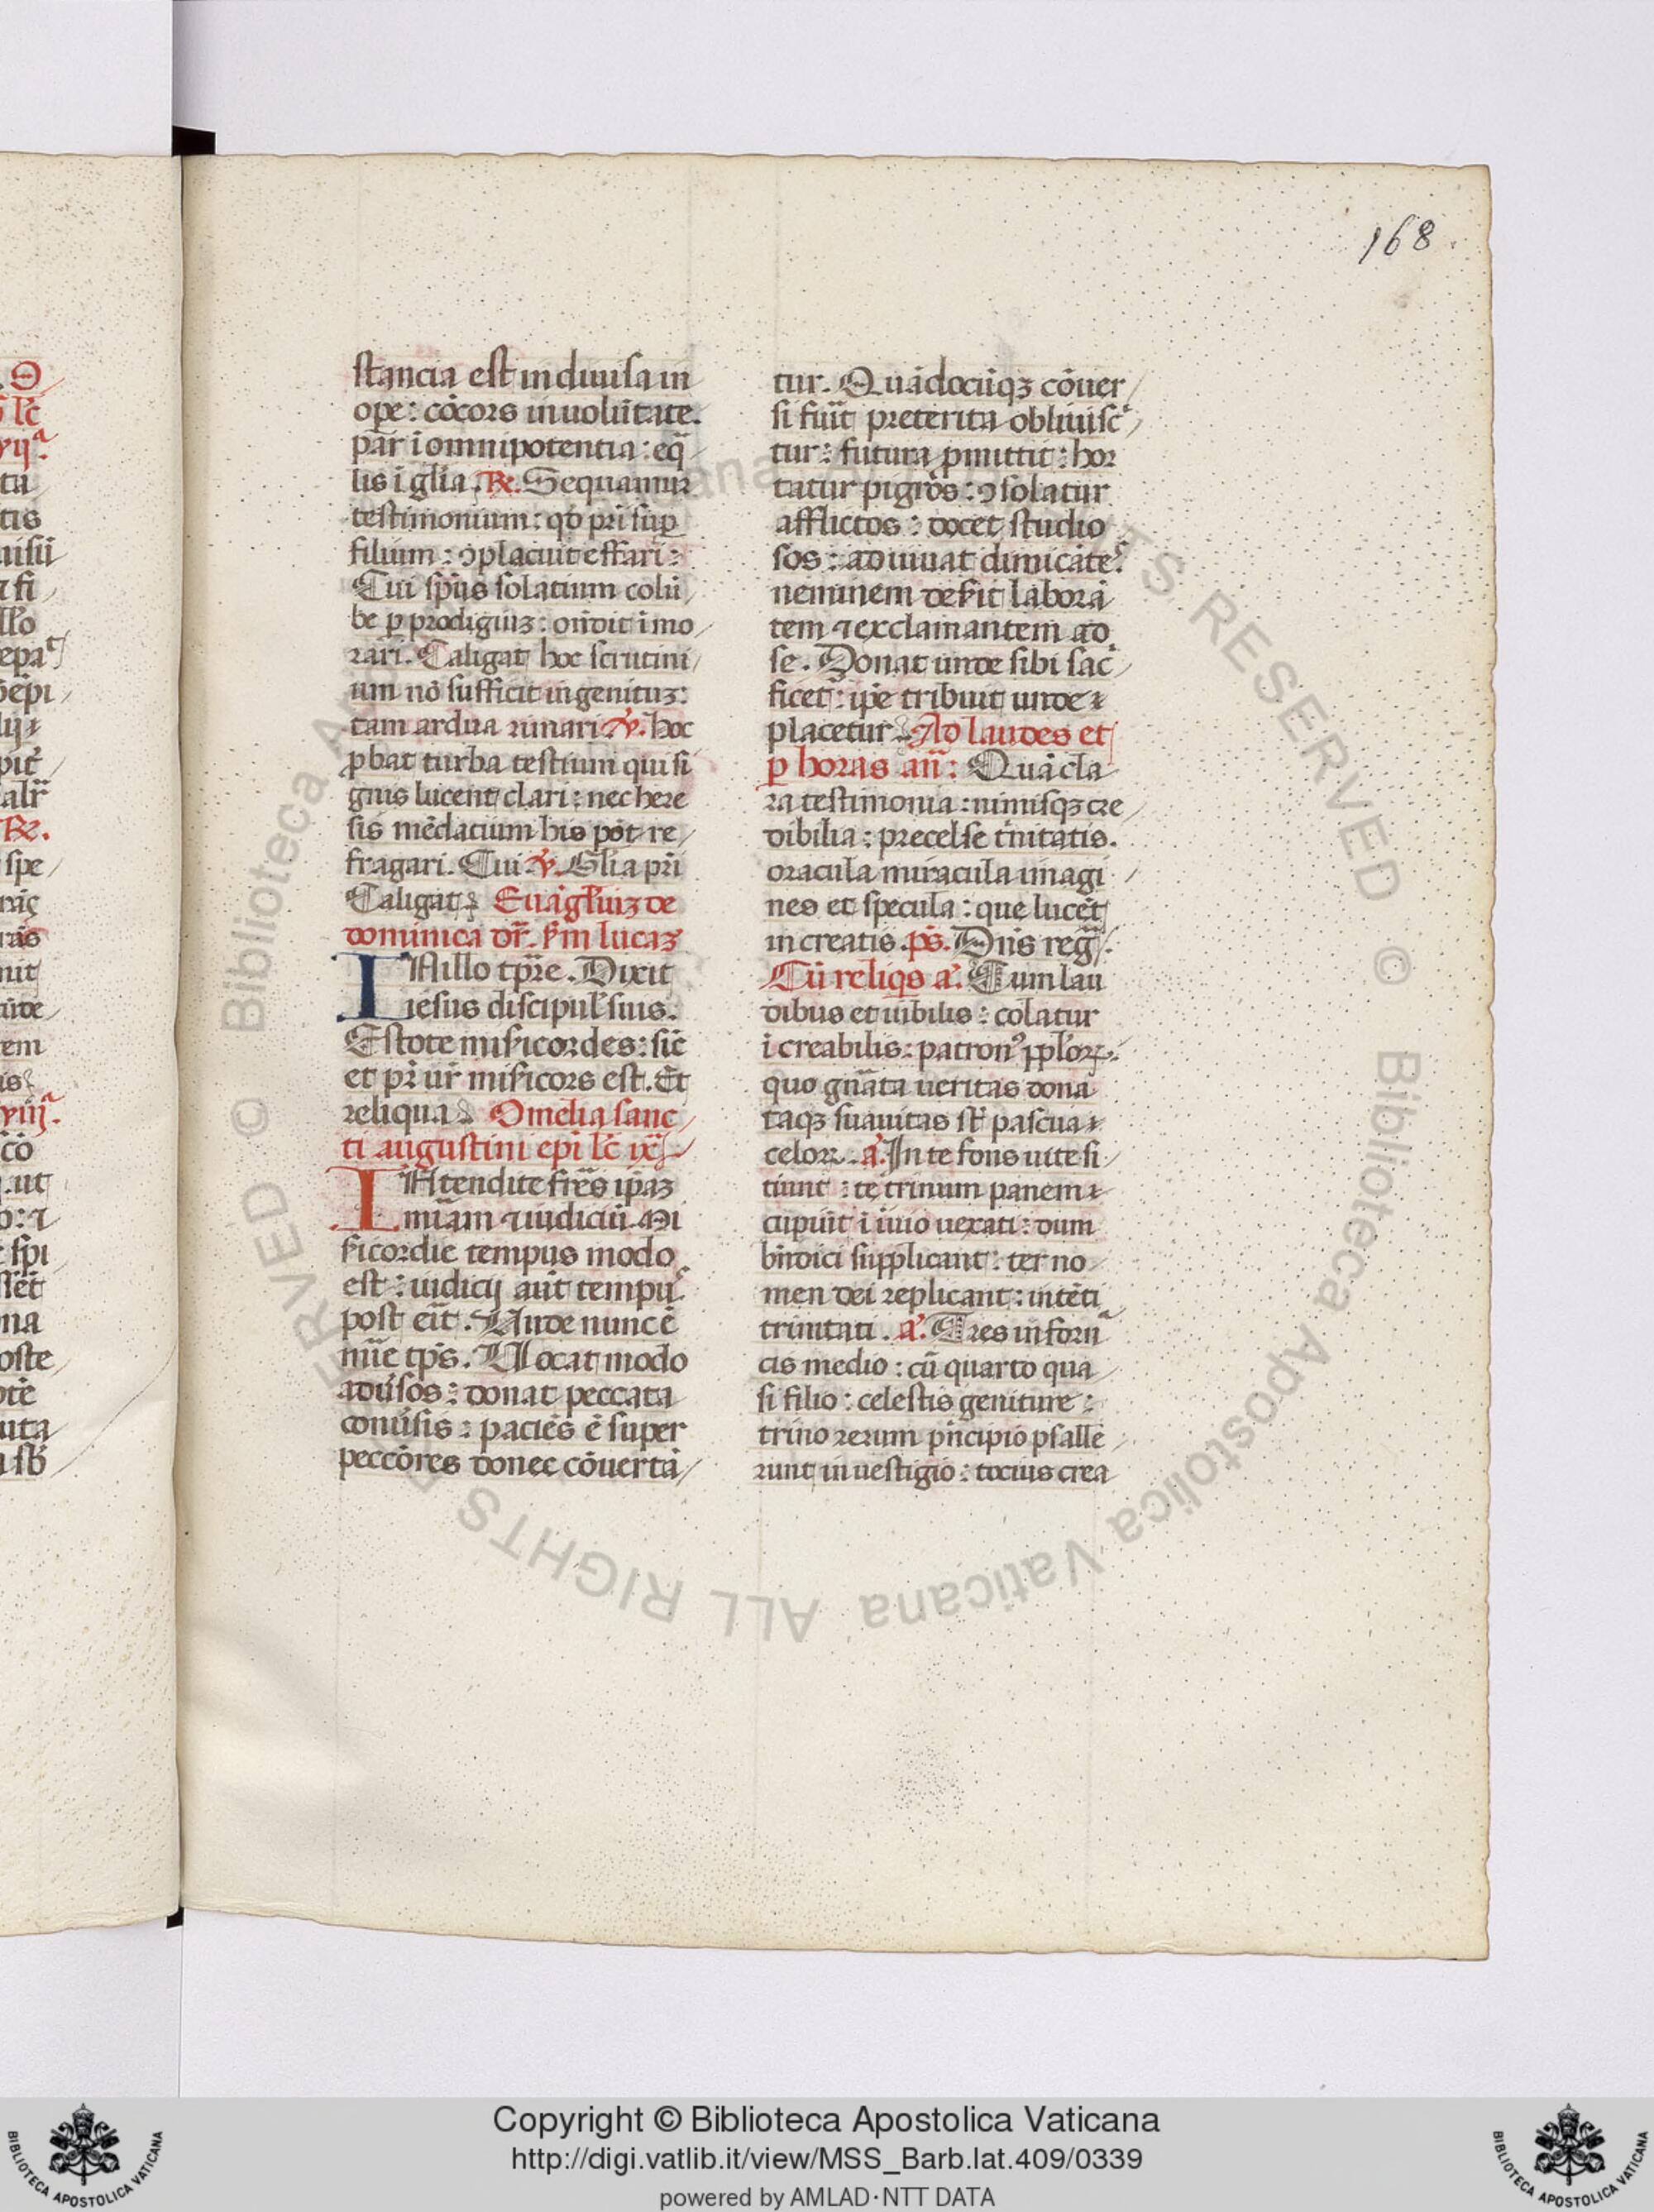 168.
stancia est indiuisa in
ope: cōcors in uolūtate.
par ī omnipotentia: eq̄
lis ī gl̄ia. R̄. Sequamur
testimonium: qd̄ pr̄i sup̄
filium: ꝯplacuit effari:
Cui sp̄us solatium colū
be ꝑ prodigiuꝫ: on̄dit imo
rari. Caligat hoc scrutini
um nō sufficit ingenituꝫ:
tam ardua rimari. ℣. hoc
ꝓbat turba testium qui si
gnis lucent clari: nec here
sis mēdatium his pōt re
fragari. Cui ℣. Gl̄ia pr̄i
Caligat Euāgl̄iuꝫ de
dominica or̄. sm̄ lucaꝫ
IN illo tp̄re. Dixit
iesus discipul̄ suis.
Estote mis̄icordes: sic̄
et pr̄ ur̄ mis̄icors est. Et
reliqua Omelia sanc
ti augustini ep̄i lc̄ ix̄
INtendite fr̄es ip̄aꝫ
mīam ⁊ iudiciū. Mi
s̄icordie tempus modo
est: iudicij aūt tempꝰ
post eīt. Unde nunc ē
mīe tp̄s. Uocat modo
adūsos: donat peccata
conūsis: paciēs ē super
peccōres donec cōuertā
tur. Quādocūqꝫ cōuer
si fūīt preterita obliuisc̄
tur: futura ꝓmittit: hor
tatur pigros: ꝯsolatur
afflictos: docet studio
sos: adiuuat dimicātes
neminem des̄it laborā
tem ⁊ exclamantem ad
se. Donat unde sibi sac̄
ficet: ip̄e tribuit unde
placetur. Ad laudes et
ꝑ horas an̄: Quā cla
ra testimonia: nimisqꝫ cre
dibilia: precelse tinitatis.
oracula miracula imagi
nes et specula: que lucēt
in creatis. ps̄. Dn̄s reg̅.
Cū reliqs a. Cum lau
dibus et iubilis: colatur
ī creabilis: patronꝰ pp̄loꝝ.
quo gn̄ata ueritas dona
taqꝫ suauitas st̄ pascua
celoꝝ. a. In te fons uite si
tiunt: te trinum panem
cupiūt ī uno uexati: dum
bn̄dici supplicant: ter no
men dei replicant: intēti
trinitati. a. Tres in forn̄
cis medio: cū quarto qua
si filio: celestis geniture:
trino rerum pn̄cipio psalle
runt in uestigio: tocius crea
© Biblioteca Apostolica Vaticana ALL RIGHTS RESERVED
Copyright © Biblioteca Apostolica Vaticana
http://digi.vatlib.it/view/MSS_Barb.lat.409/0339
powered by AMLAD·NTT DATA
BIBLIOTECA APOSTOLICA VATICANA
BIBLIOTECA APOSTOLICA VATICANA